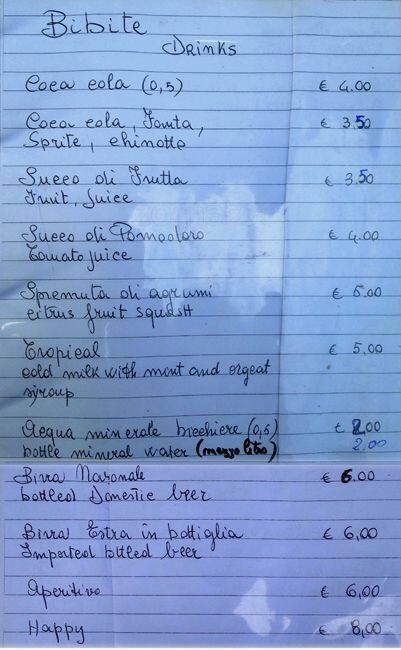 Bibite
Drinks
Coca cola (0,5) € 4.00
Coca cola, Fanta, € 3.50
Sprite, chinotto
Succo di Frutta € 3.50
Fruit, Juice
Succo di Pomodoro € 4.00
Tomato juice
Spremuta di agrumi € 5.00
citrus fruit squash
Tropical € 5,00
cold milk with mint and orgeat
syroup
Acqua minerale bicchiere (0,5) € 2,00
bottle mineral water (mezzo litro) 2.00
Birra Nazionale € 6.00
bottled Domestic beer
Birra Estra in bottiglia € 6,00
Imported bttled beer
Aperitivo € 6,00
Happy € 8,00